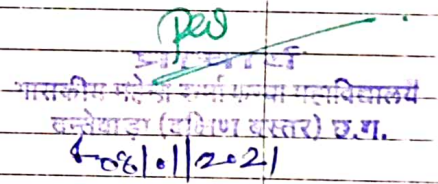 प्राचार्य
शासकीय महेन्द्र कर्मा कन्या महाविद्यालय
दन्तेवाड़ा (दक्षिण बस्तर) छ.ग.
08/01/2021